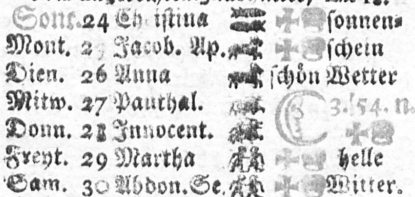 Sont. 24 Christina sonnen=
Mont. 25 Jacob. Ap. schein
Dien. 26 Anna schön Wetter
Mitw. 27 Panthal. 3. 54. n.
Donn. 28 Innocent.
Freyt. 29 Martha helle
Sam. 30 Abdon. Se. Witter.